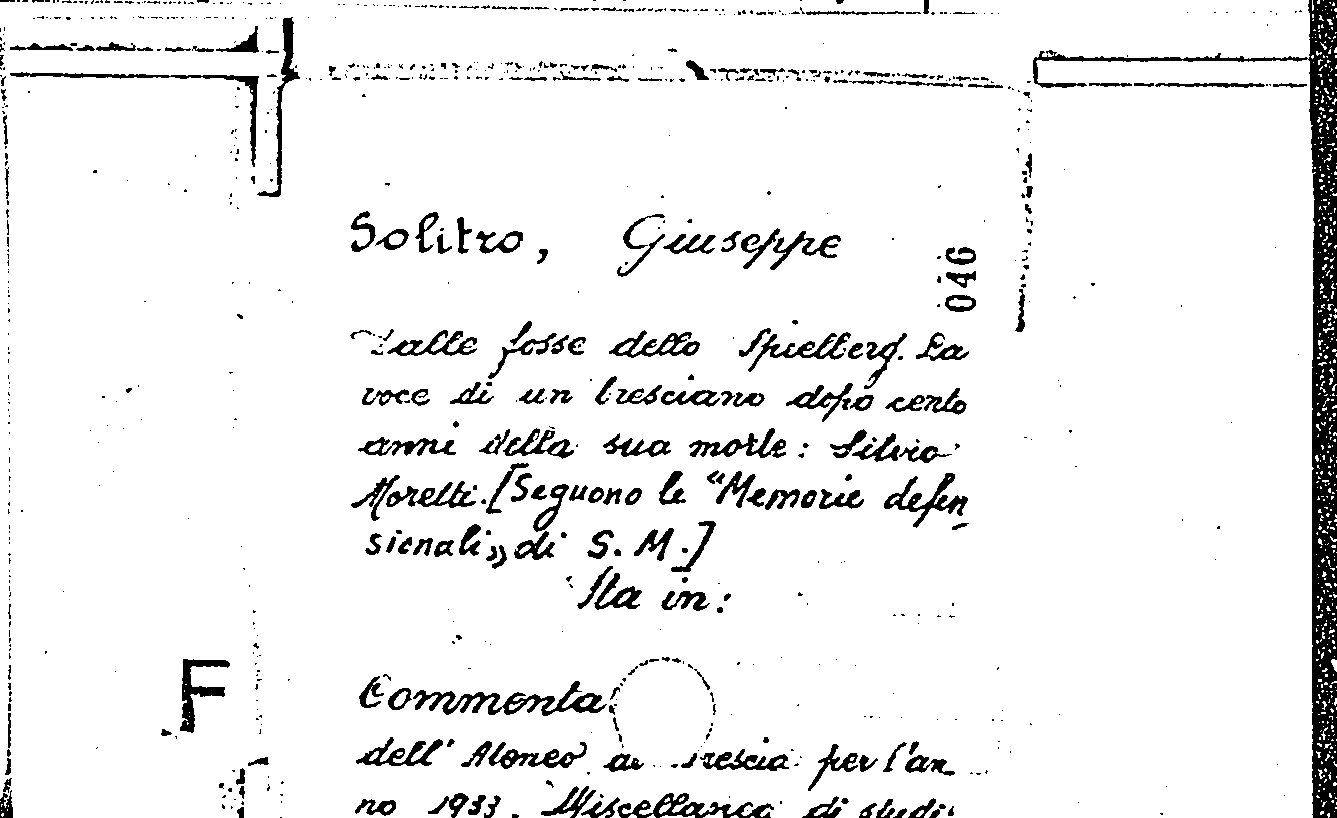 Solitro, Giuseppe
046
Dalle fosse dello Spielberg. La
voce di un bresciano dopo cento
anni della sua morte: Silvio
Moretti. [Seguono le "Memorie defen_
sionali„ di S. M.]
Sta in:
F
Commenta
dell' Ateneo di Brescia per l'an_
no 1933. Miscellanea di studi